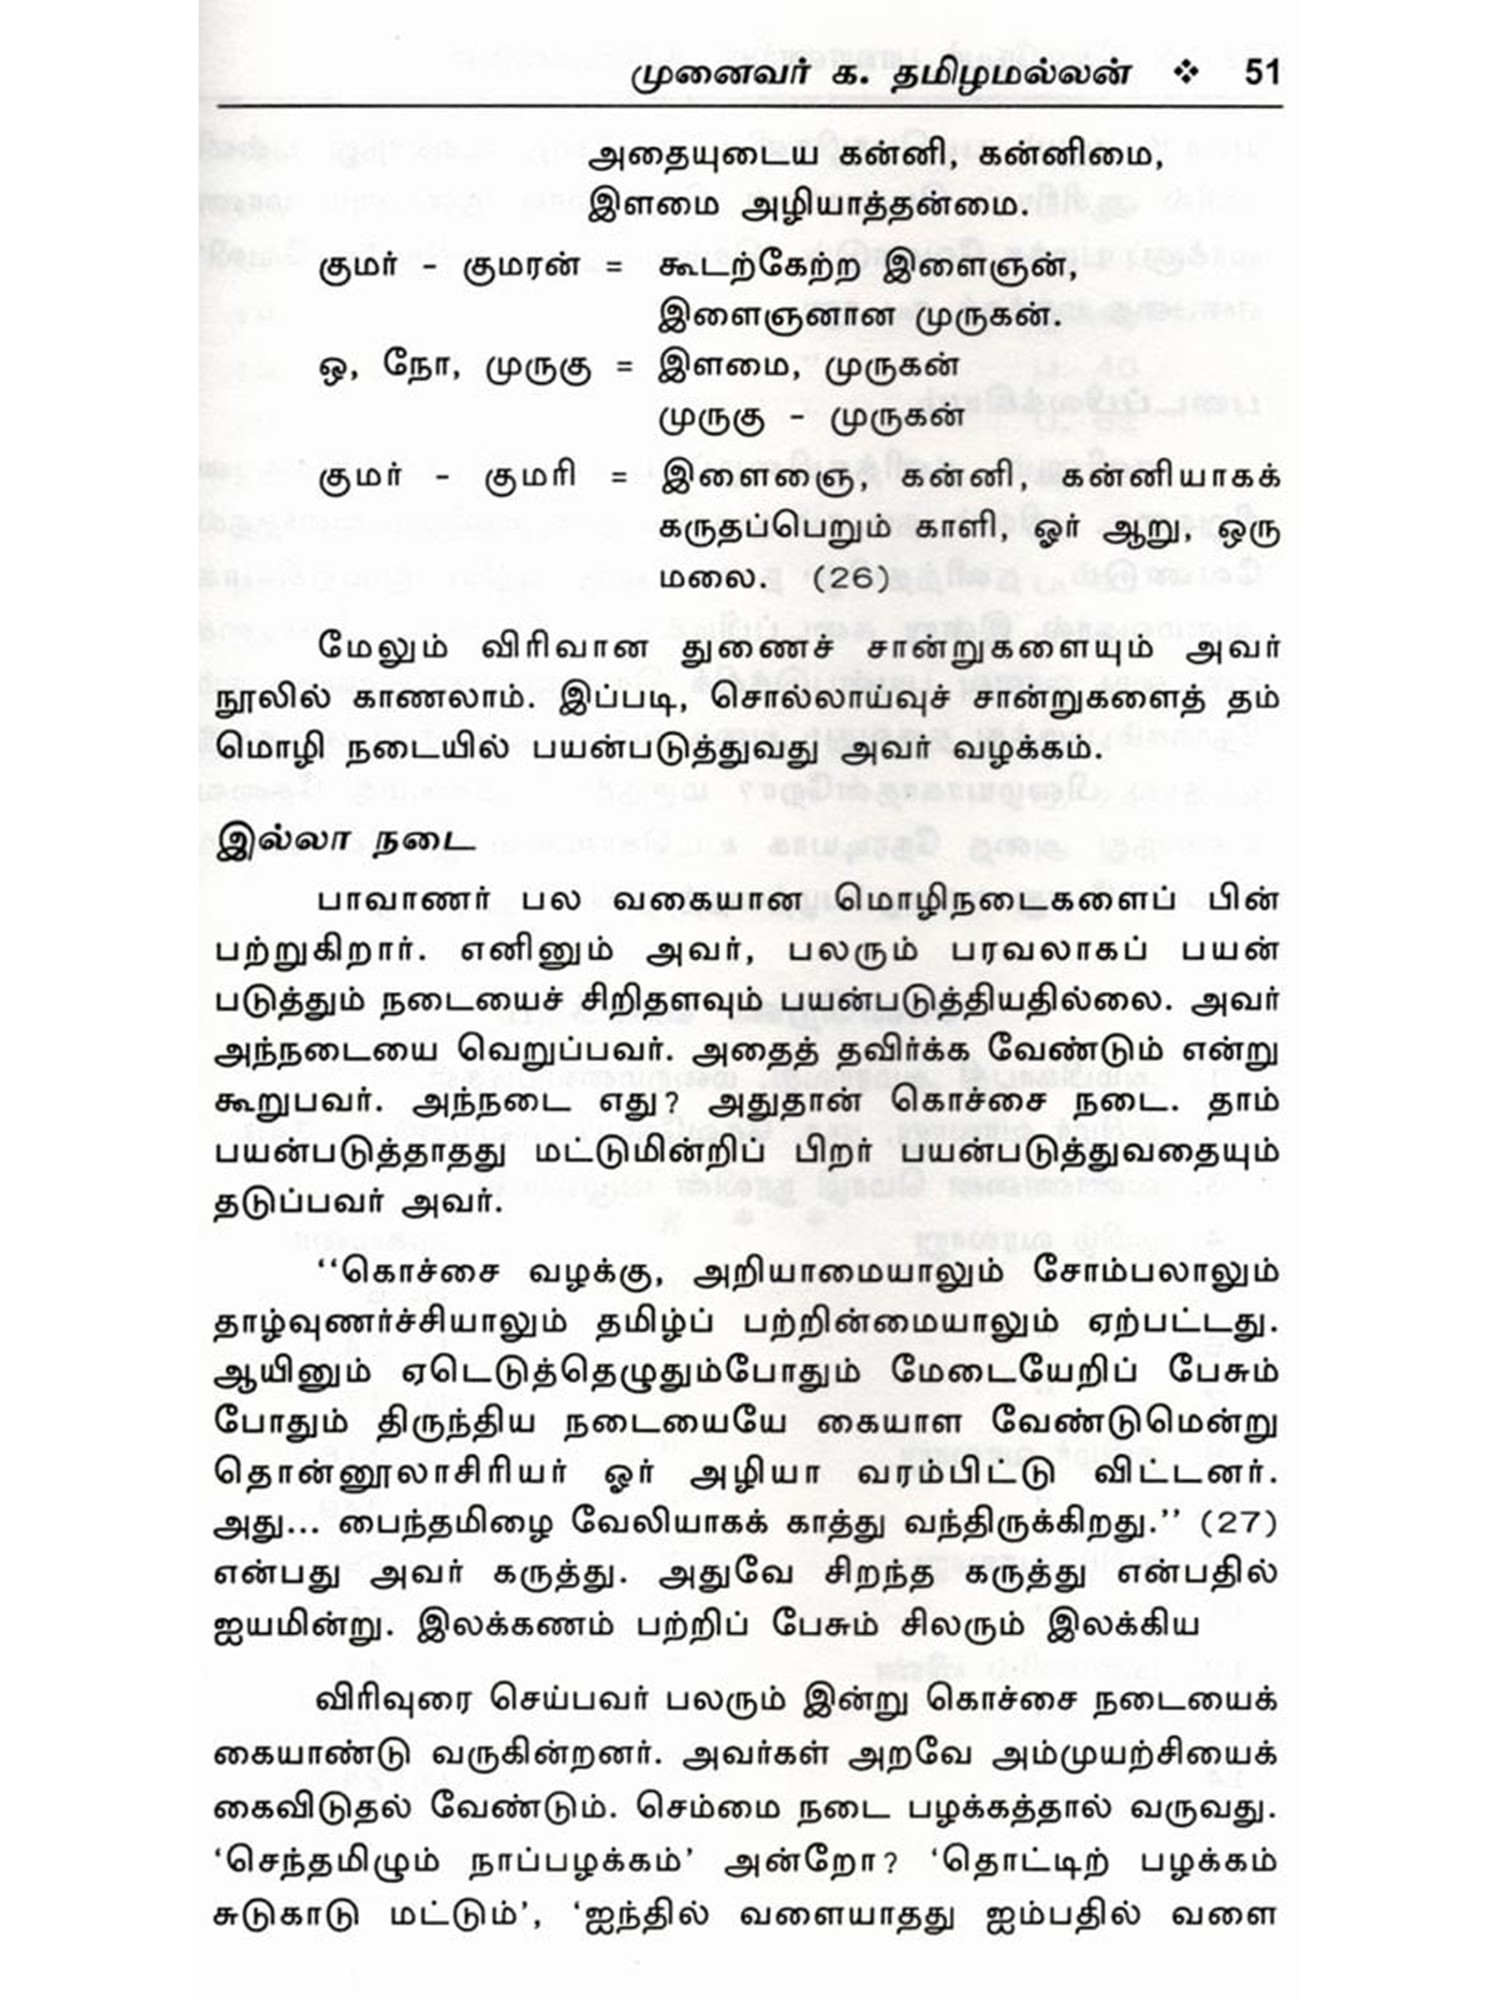 முனைவர் க. தமிழமல்லன் ❖ 51
அதையுடைய கன்னி, கன்னிமை,
இளமை அழியாத்தன்மை.
குமர் – குமரன் = கூடற்கேற்ற இளைஞன்,
இளைஞனான முருகன்.
ஒ, நோ, முருகு = இளமை, முருகன்
முருகு – முருகன்
குமர் – குமரி = இளைஞை, கன்னி, கன்னியாகக்
கருதப்பெறும் காளி, ஓர் ஆறு, ஒரு
மலை. (26)
மேலும் விரிவான துணைச் சான்றுகளையும் அவர்
நூலில் காணலாம். இப்படி, சொல்லாய்வுச் சான்றுகளைத் தம்
மொழி நடையில் பயன்படுத்துவது அவர் வழக்கம்.
இல்லா நடை
பாவாணர் பல வகையான மொழிநடைகளைப் பின்
பற்றுகிறார். எனினும் அவர், பலரும் பரவலாகப் பயன்
படுத்தும் நடையைச் சிறிதளவும் பயன்படுத்தியதில்லை. அவர்
அந்நடையை வெறுப்பவர். அதைத் தவிர்க்க வேண்டும் என்று
கூறுபவர். அந்நடை எது? அதுதான் கொச்சை நடை. தாம்
பயன்படுத்தாதது மட்டுமின்றிப் பிறர் பயன்படுத்துவதையும்
தடுப்பவர் அவர்.
‘‘கொச்சை வழக்கு, அறியாமையாலும் சோம்பலாலும்
தாழ்வுணர்ச்சியாலும் தமிழ்ப் பற்றின்மையாலும் ஏற்பட்டது.
ஆயினும் ஏடெடுத்தெழுதும்போதும் மேடையேறிப் பேசும்
போதும் திருந்திய நடையையே கையாள வேண்டுமென்று
தொன்னூலாசிரியர் ஓர் அழியா வரம்பிட்டு விட்டனர்.
அது... பைந்தமிழை வேலியாகக் காத்து வந்திருக்கிறது.’’ (27)
என்பது அவர் கருத்து. அதுவே சிறந்த கருத்து என்பதில்
ஐயமின்று. இலக்கணம் பற்றிப் பேசும் சிலரும் இலக்கிய
விரிவுரை செய்பவர் பலரும் இன்று கொச்சை நடையைக்
கையாண்டு வருகின்றனர். அவர்கள் அறவே அம்முயற்சியைக்
கைவிடுதல் வேண்டும். செம்மை நடை பழக்கத்தால் வருவது.
‘செந்தமிழும் நாப்பழக்கம்’ அன்றோ? ‘தொட்டிற் பழக்கம்
சுடுகாடு மட்டும்’, ‘ஐந்தில் வளையாதது ஐம்பதில் வளை